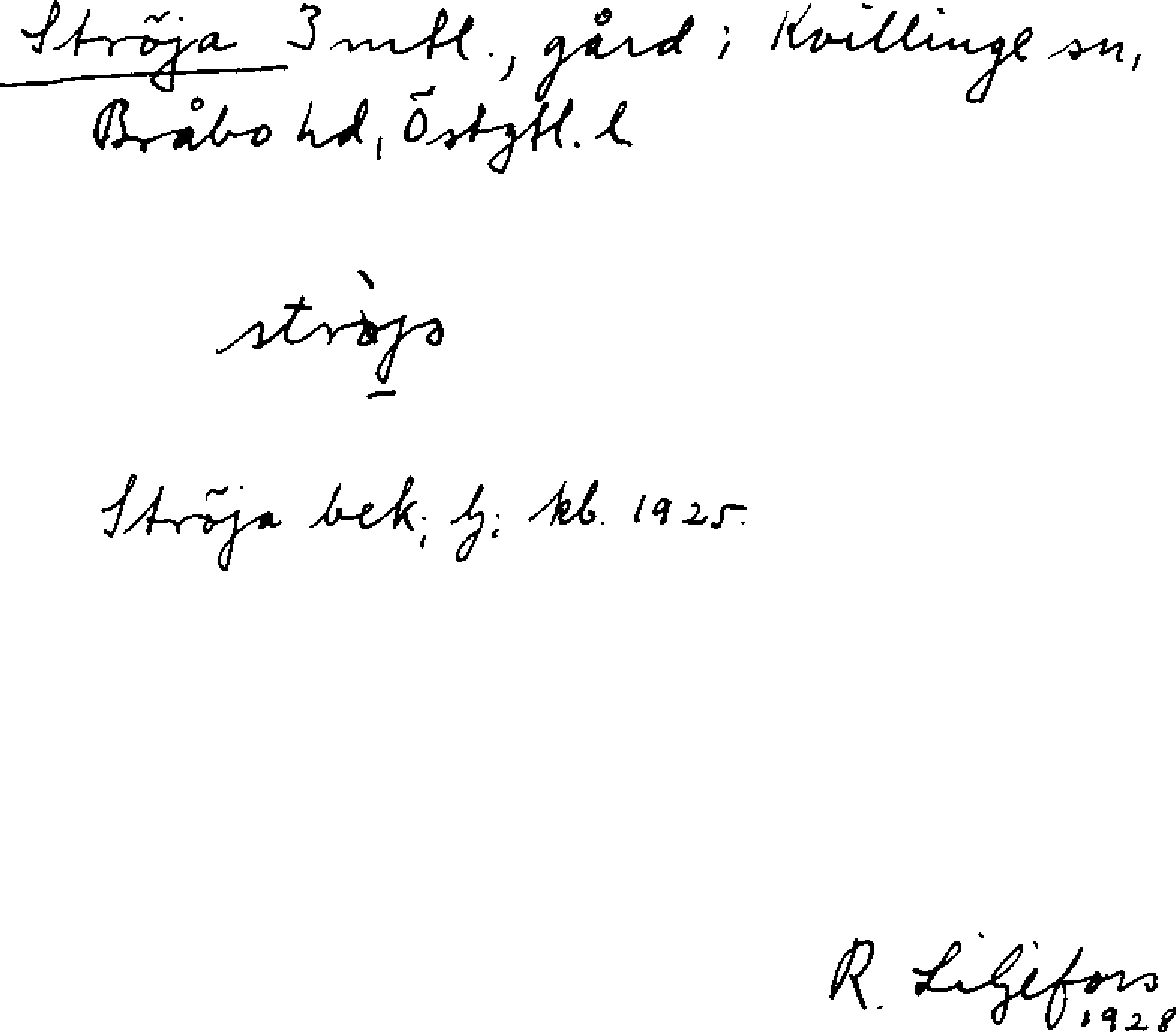 Ströja 3 mtl., gård i Kvillinge sn,
Bråbo hd, Östgtl. l
Ströja bek. kb. 1925.
R. Liljefors
1928